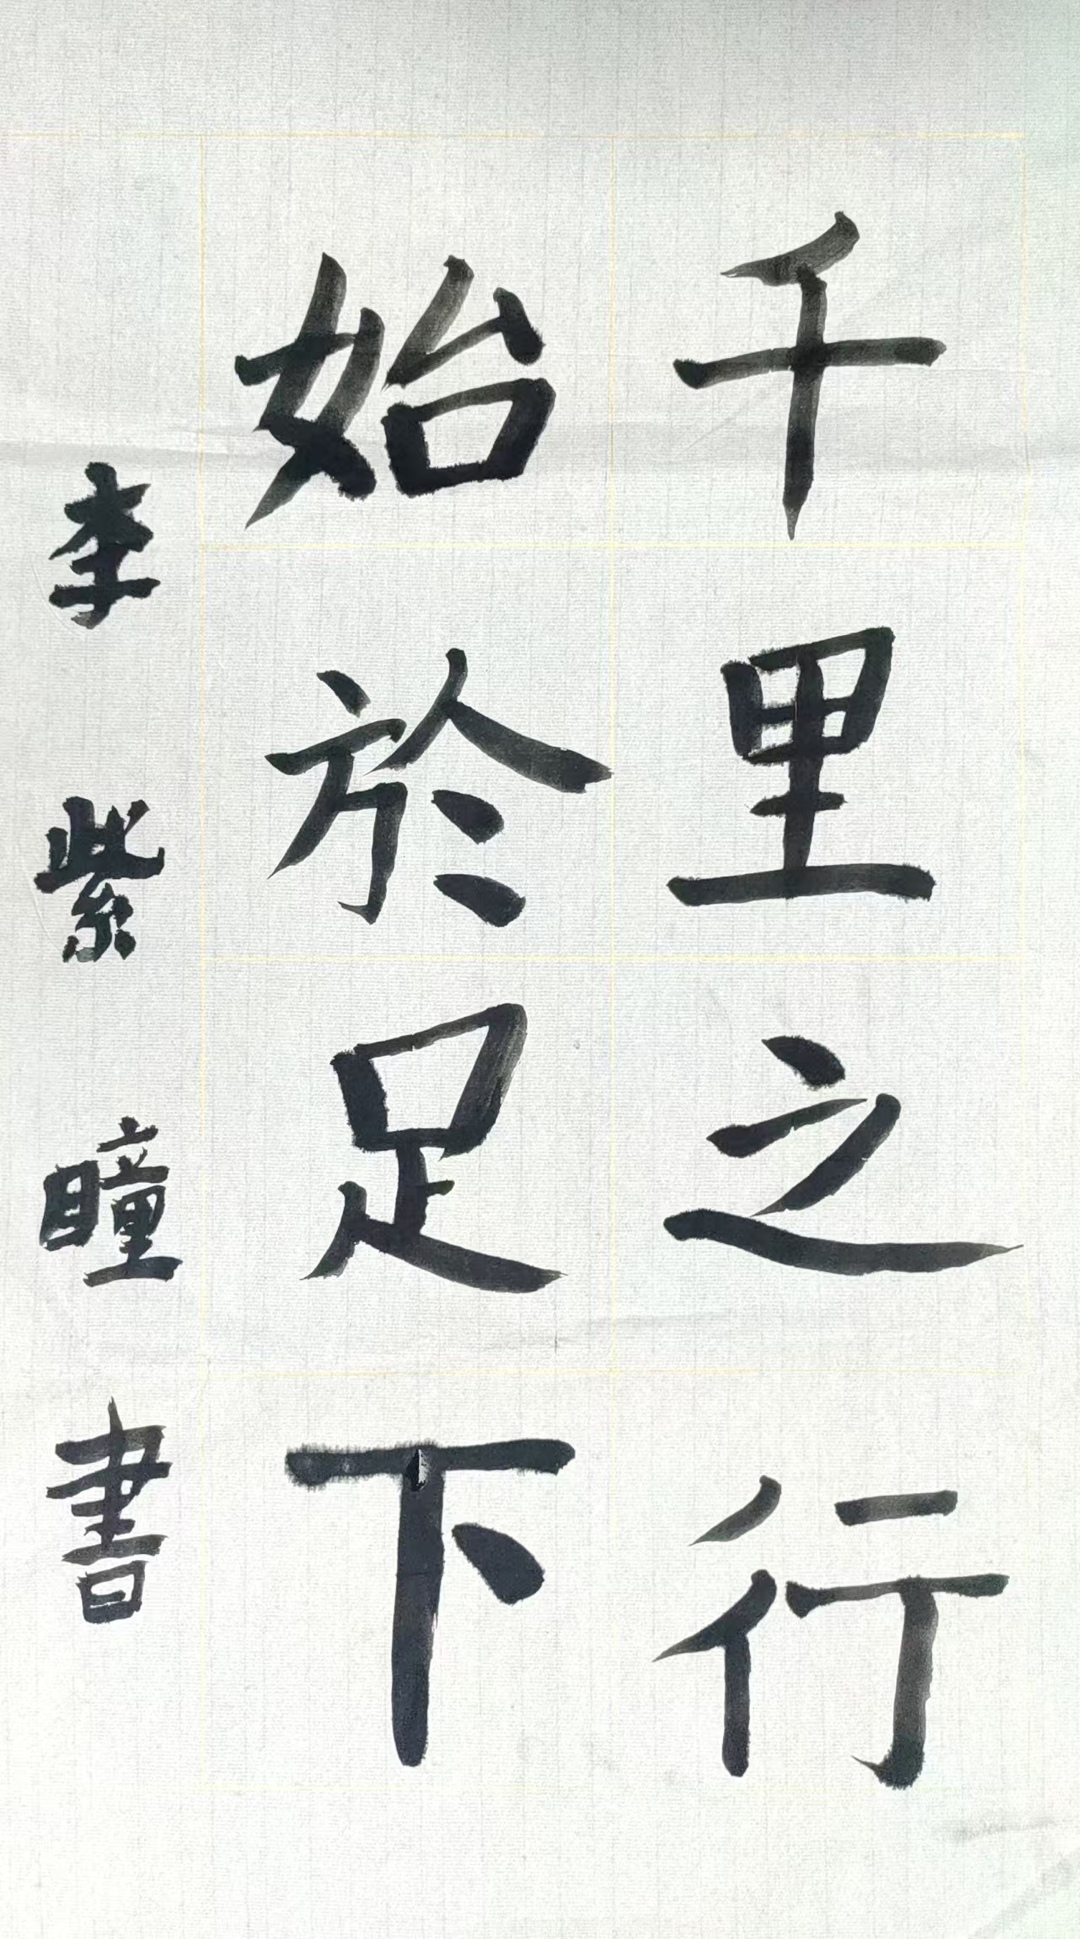 千里之行
始於足下
李紫瞳書